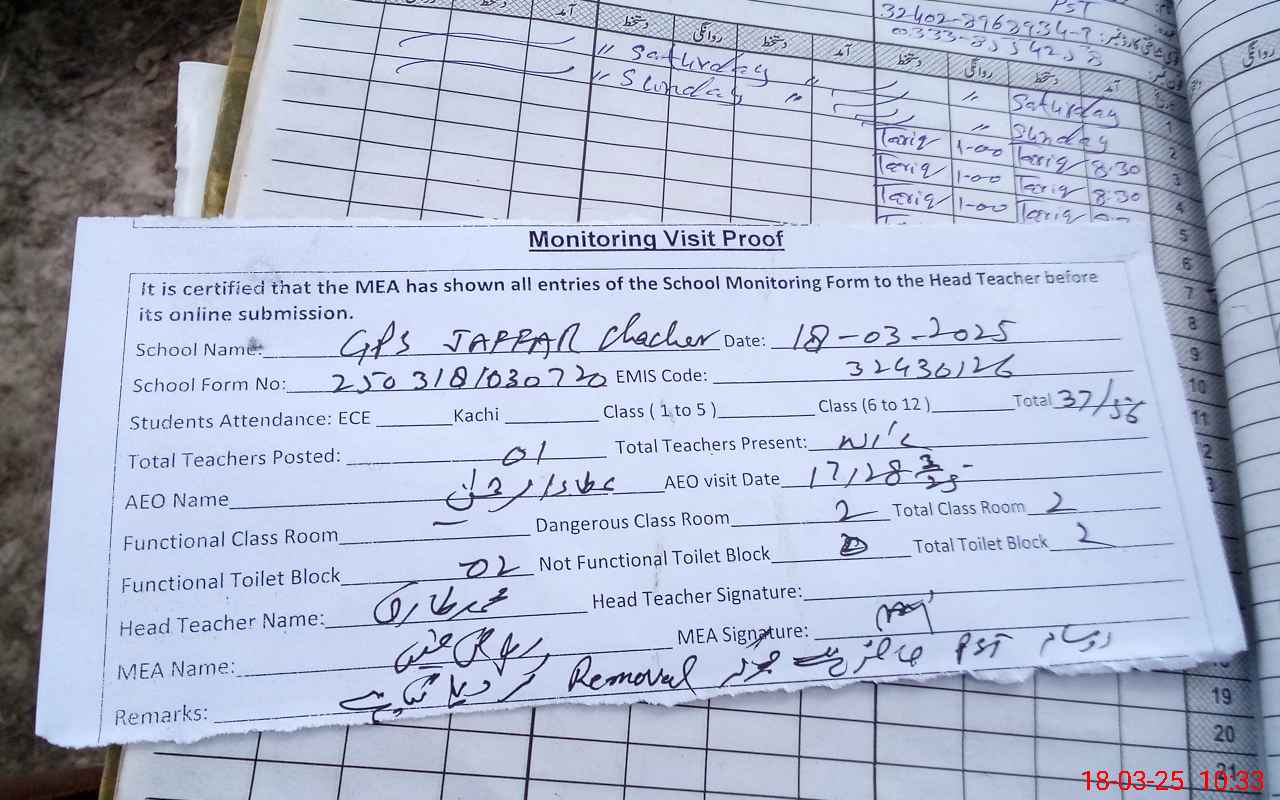 PST
32402-8963934-7
آمد دستخط روانگی دستخط آمد دستخط روانگی دستخط آمد
" Saturday " " Saturday 1
" Sunday " " Sunday 2
Tariq 1-00 Tariq 8.30 3
Tariq 1-00 Tariq 8.30 4
Tariq 1-00 Tariq 5
6
7
8
9
10
11
Monitoring Visit Proof
It is certified that the MEA has shown all entries of the School Monitoring Form to the Head Teacher before
its online submission.
School Name: GPS JAFFAR Chacher Date: 18-03-2025
School Form No: 250318/030720 EMIS Code: 32430126
Students Attendance: ECE Kachi Class ( 1 to 5 ) Class (6 to 12 ) Total 37/56
Total Teachers Posted: 01 Total Teachers Present: Nil
AEO Name AEO visit Date 17/28 3/25
Functional Class Room – Dangerous Class Room 2 Total Class Room 2
Functional Toilet Block 02 Not Functional Toilet Block 0 Total Toilet Block 2
Head Teacher Name: محمد طارق Head Teacher Signature:
MEA Name: MEA Signature:
Remarks: PST Removal
19
20
21
18-03-25 10:33